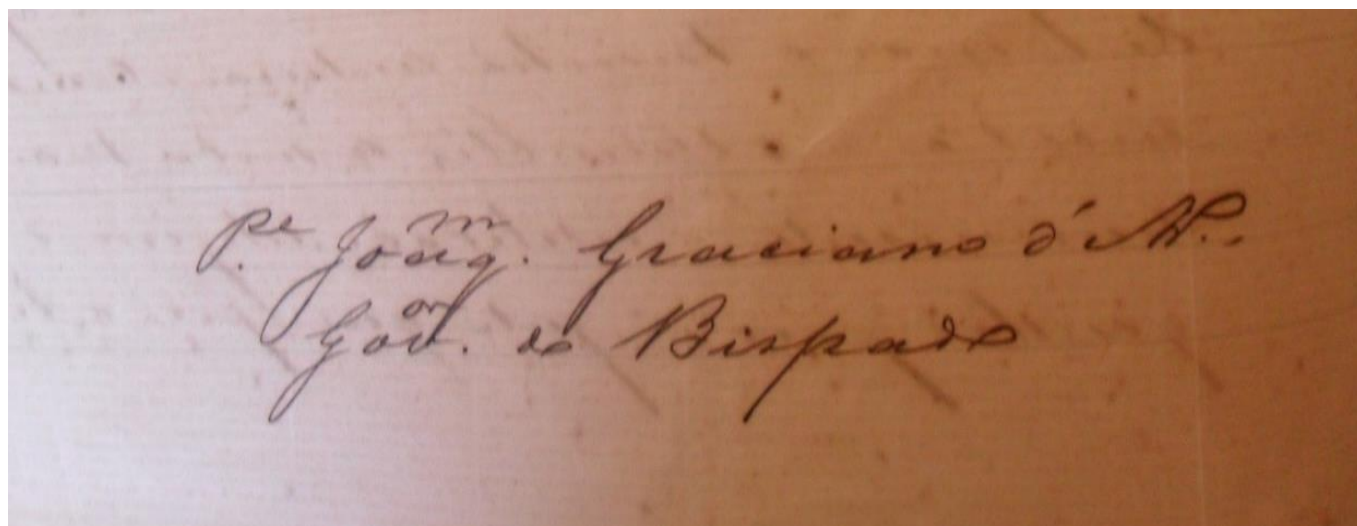 Pe. Joaqm. Graciano d'A..
Govor. do Bispado